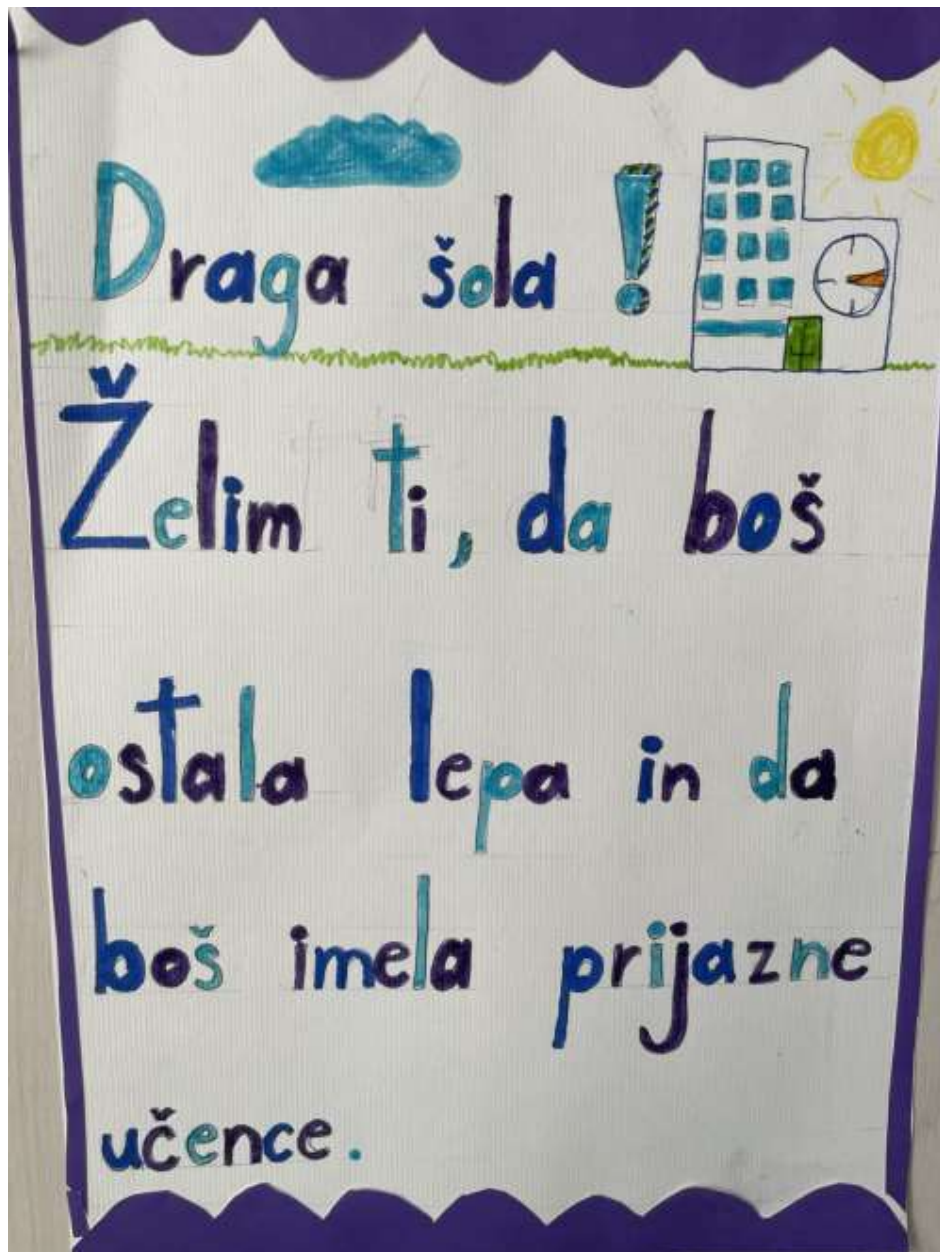 Draga šola!
Želim ti, da boš
ostala lepa in da
boš imela prijazne
učence.